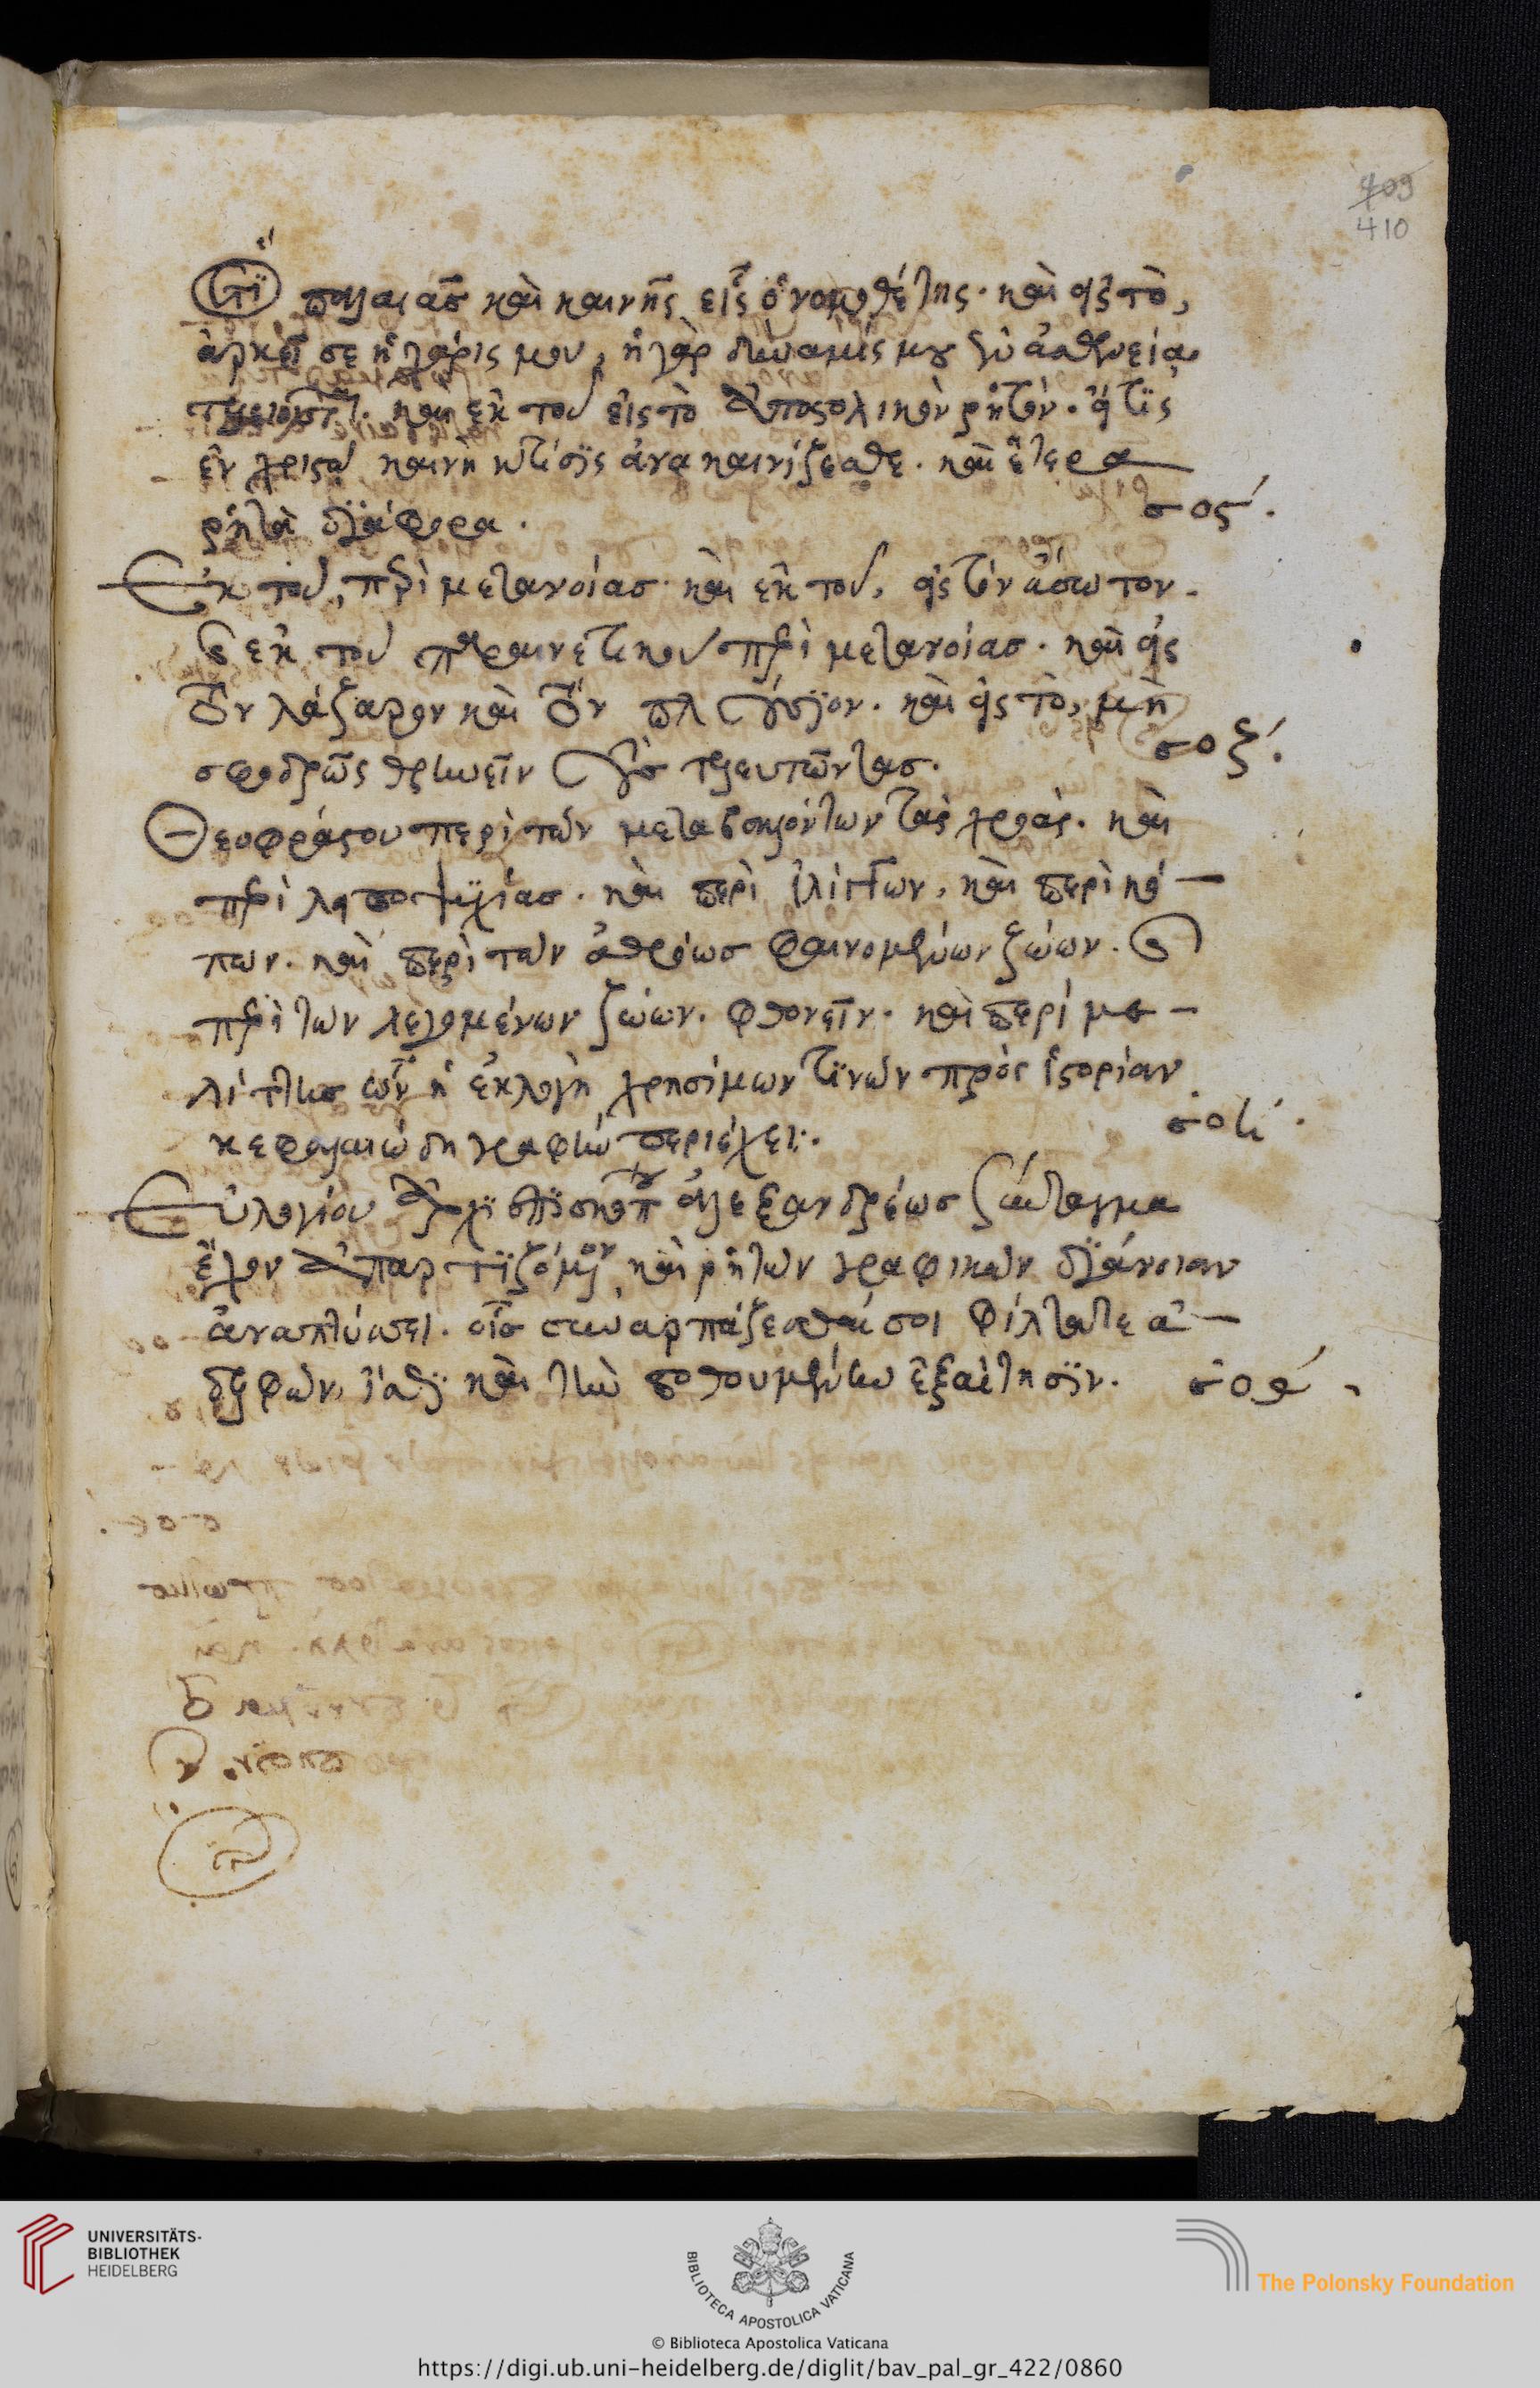 409
410
ὅτι παλαιᾶς καὶ καινῆς εἷς ὁ νομοθέτης· καὶ εἰς τὸ,
ἀρκεῖ σε ἡ χάρις μου, ἡ γὰρ δύναμίς μου ἐν ἀσθενείᾳ
τελειοῦται. καὶ ἐκ τοῦ εἰς τὸ ἀποστολικὸν ῥητόν. εἴ τις
ἐν χριστῷ καινὴ κτίσις ἀνακαινίζεσθε. καὶ ἕτερα
ῥητὰ διάφορα. σος΄.
Ἐκ τοῦ, περὶ μετανοίας· καὶ ἐκ τοῦ, εἰς τὸν ἄσωτον.
καὶ ἐκ τοῦ παραινετικοῦ περὶ μετανοίας. καὶ εἰς
τὸν λάζαρον καὶ τὸν πλούσιον. καὶ εἰς τὸ, μὴ
σφοδρῶς θρηνεῖν τοὺς τελευτῶντας. σοζ΄.
Θεοφράστου περὶ τῶν μεταβαλλόντων τὰς χροάς. καὶ
περὶ λειποψυχίας. καὶ περὶ ἰλίγγων, καὶ περὶ κό-
πων. καὶ περὶ τῶν ἀθρόως φαινομένων ζώων. καὶ
περὶ τῶν λεγομένων ζώων. φθονεῖν. καὶ περὶ με-
λίττης ὧν ἡ ἐκλογὴ χρησίμων τινῶν πρὸς ἱστορίαν
κεφαλαιώδη γραφὴν περιέχει. σοη΄.
Εὐλογίου ἀρχιεπισκόπου ἀλεξανδρέως σύνταγμα
ἔχον ἀπαρτιζόμενον καὶ ῥητῶν γραφικῶν διάνοιαν
ἀναπτύσσει. οἷς συναρπάζεσθαί σοι φίλτατε ἀ-
δελφῶν, ἴσθι καὶ τὴν ποθουμένην ἐξαίτησιν. σοθ΄.
UNIVERSITÄTS-
BIBLIOTHEK
HEIDELBERG
BIBLIOTECA APOSTOLICA VATICANA
The Polonsky Foundation
© Biblioteca Apostolica Vaticana
https://digi.ub.uni-heidelberg.de/diglit/bav_pal_gr_422/0860